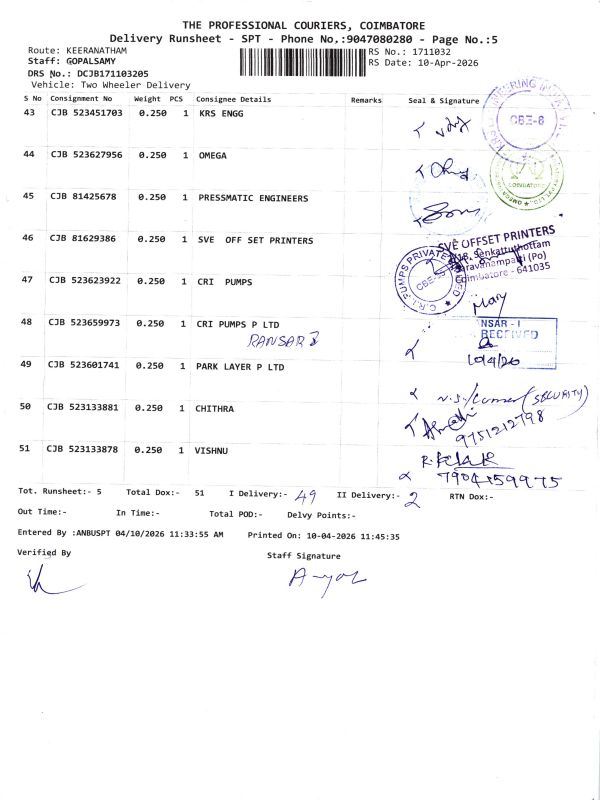 THE PROFESSIONAL COURIERS, COIMBATORE
Delivery Runsheet - SPT - Phone No,:9047080280 - Page No.:5
Route: KEERANATHAM
RS No.: 1711032
Staff: GOPALSAMY
RS Date: 10-Apr-2026
DRS No.: DCJB171103205
Vehicle: Two Wheeler Delivery
S No Consignment No Weight PCS Consignee Details Remarks Seal & Signature
43 CJB 523451703 0.250 1 KRS ENGG
CBE-6
44 CJB 523627956 0.250 1 OMEGA
COIMBATORE
45 CJB 81425678 0.250 1 PRESSMATIC ENGINEERS
46 CJB 81629386 0.250 1 SVE OFF SET PRINTERS
SVE OFFSET PRINTERS
Senkattuthottam
(Po)
Coimbatore - 641035
C.R.I. PUMPS PRIVATE LIMITED
47 CJB 523623922 0.250 1 CRI PUMPS
48 CJB 523659973 0.250 1 CRI PUMPS P LTD
RANSAR
NSAR - I
RECEIVED
10/4/26
49 CJB 523601741 0.250 1 PARK LAYER P LTD
(SECURITY)
50 CJB 523133881 0.250 1 CHITHRA
9751212798
51 CJB 523133878 0.250 1 VISHNU
7904159975
Tot. Runsheet:- 5 Total Dox:- 51 I Delivery:- 49 II Delivery:- 2 RTN Dox:-
Out Time:- In Time:- Total POD:- Delvy Points:-
Entered By :ANBUSPT 04/10/2026 11:33:55 AM Printed On: 10-04-2026 11:45:35
Verified By Staff Signature